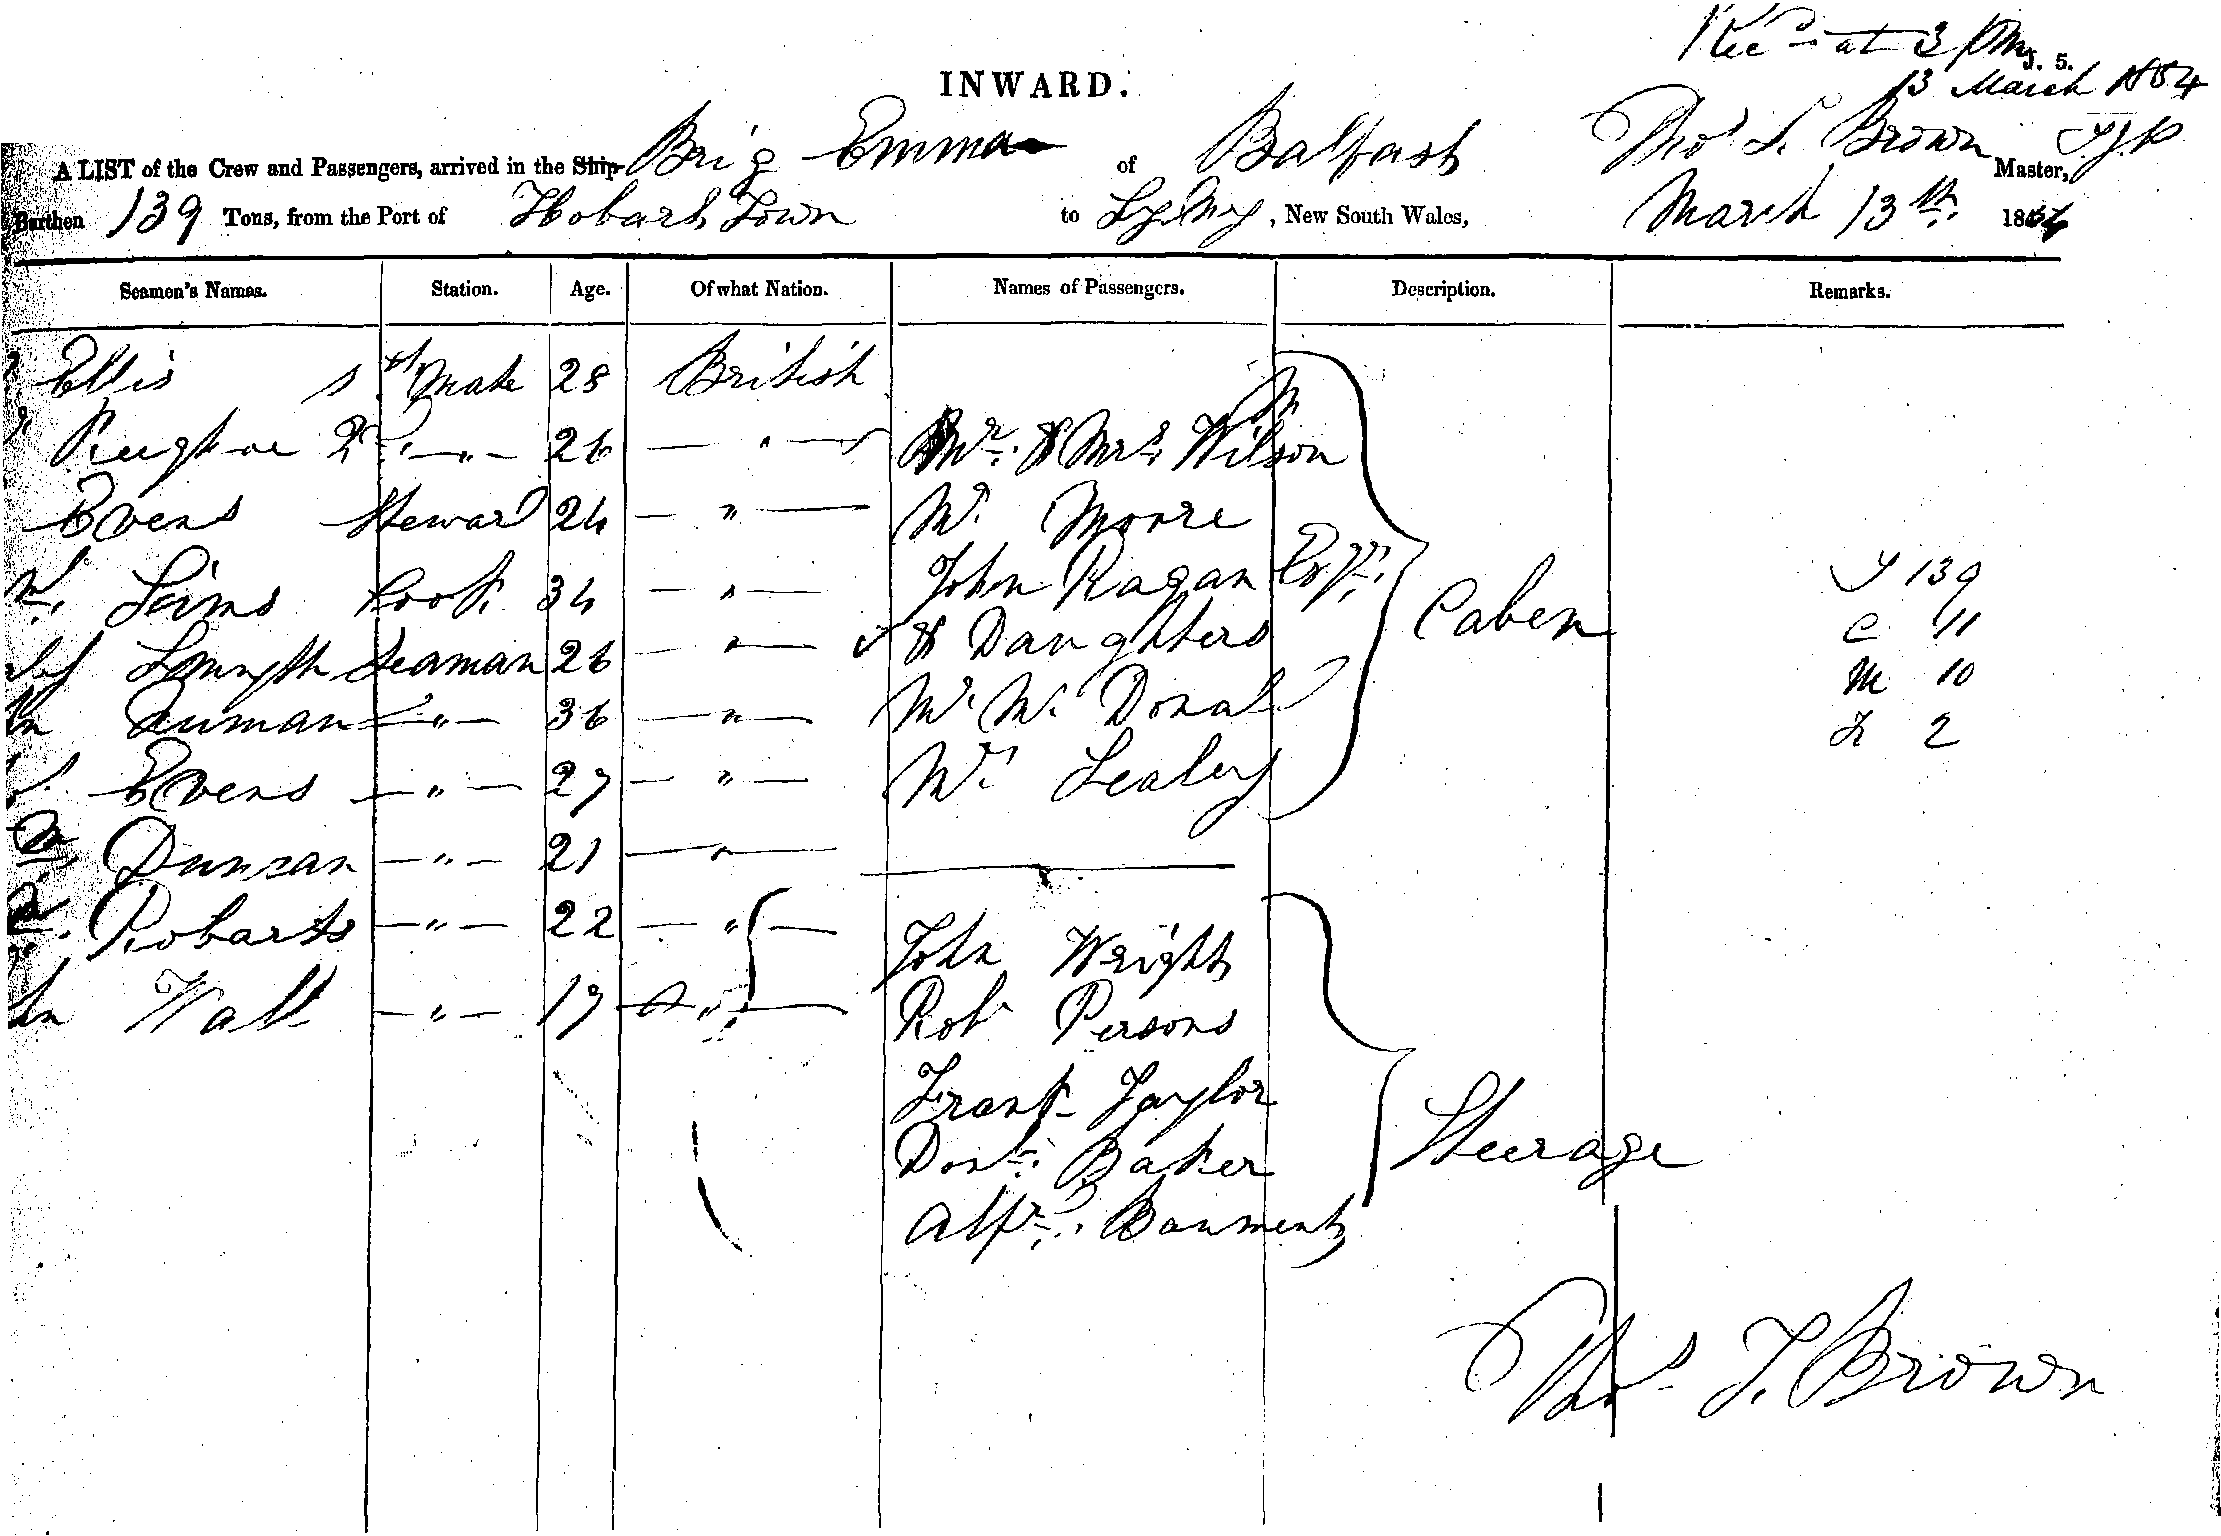 Rec'd at 3 PM
J. 5.
13 March 1854
INWARD.
A LIST of the Crew and Passengers, arrived in the Ship Brig Emma of Balfast Thos S. Brown Master,
Burthen 139 Tons, from the Port of Hobart Town to Sydney, New South Wales, March 13th 1854
Seamen's Names. Station. Age. Of what Nation. Names of Passengers. Description. Remarks.
Ellis 1st Mate 28 British
2d " 26 " Mr. & Mrs. Wilson
Evens Steward 24 " Mr. Moore
Sims Cook 34 " John Ragan Esqr. T 139
Smyth Seaman 26 " & Daughters Caben C 11
Numan " 36 " Mr. Mc. Donal M 10
Evens " 27 " Mr. Sealey 2
Duncan " 21 "
Robarts " 22 " John Wright
Watt " 19 " Robt Persons
Frank Taylor
Baker Steerage
Alfr.
Thos S. Brown